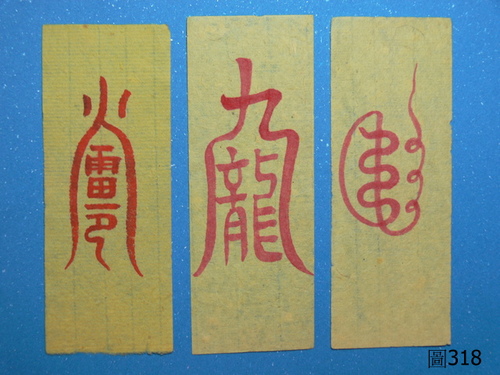 火
雷
九
龍
圖318